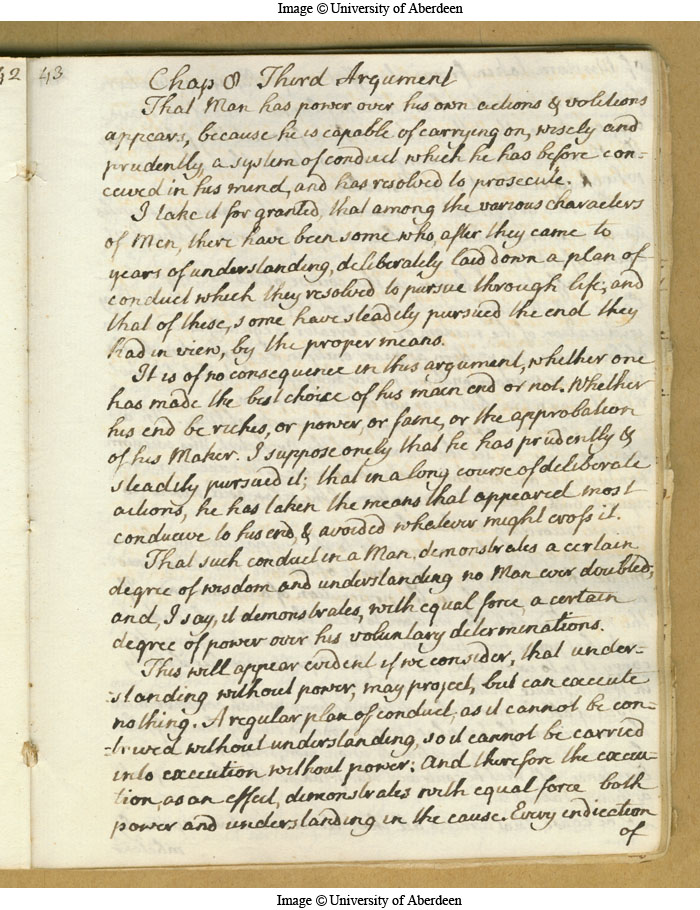 Image © University of Aberdeen
42
43
Chap 8 Third Argument
That Man has power over his own actions & volitions
appears, because he is capable of carrying on, wisely and
prudently, a system of conduct which he has before con=
ceived in his mind, and has resolved to prosecute.
I take it for granted, that among the various characters
of Men, there have been some who, after they came to
years of understanding, deliberately laid down a plan of
conduct which they resolved to pursue through life; and
that of these, some have steadily pursued the end they
had in view, by the proper means.
It is of no consequence in this argument, whether one
has made the best choice of his main end or not. Whether
his end be riches, or power, or fame, or the approbation
of his Maker. I suppose onely that he has prudently &
steadily pursued it; that in a long course of deliberate
actions, he has taken the means that appeared most
conducive to his end, & avoided whatever might cross it.
That such conduct in a Man, demonstrates a certain
degree of wisdom and understanding no Man ever doubted;
and, I say, it demonstrates, with equal force, a certain
degree of power over his voluntary determinations.
This will appear evident if we consider, that under=
standing without power, may project, but can execute
nothing. A regular plan of conduct, as it cannot be con=
trived without understanding, so it cannot be carried
into execution without power; And therefore the execu=
tion, as an effect, demonstrates with equal force both
power and understanding in the cause. Every indication
of
Image © University of Aberdeen